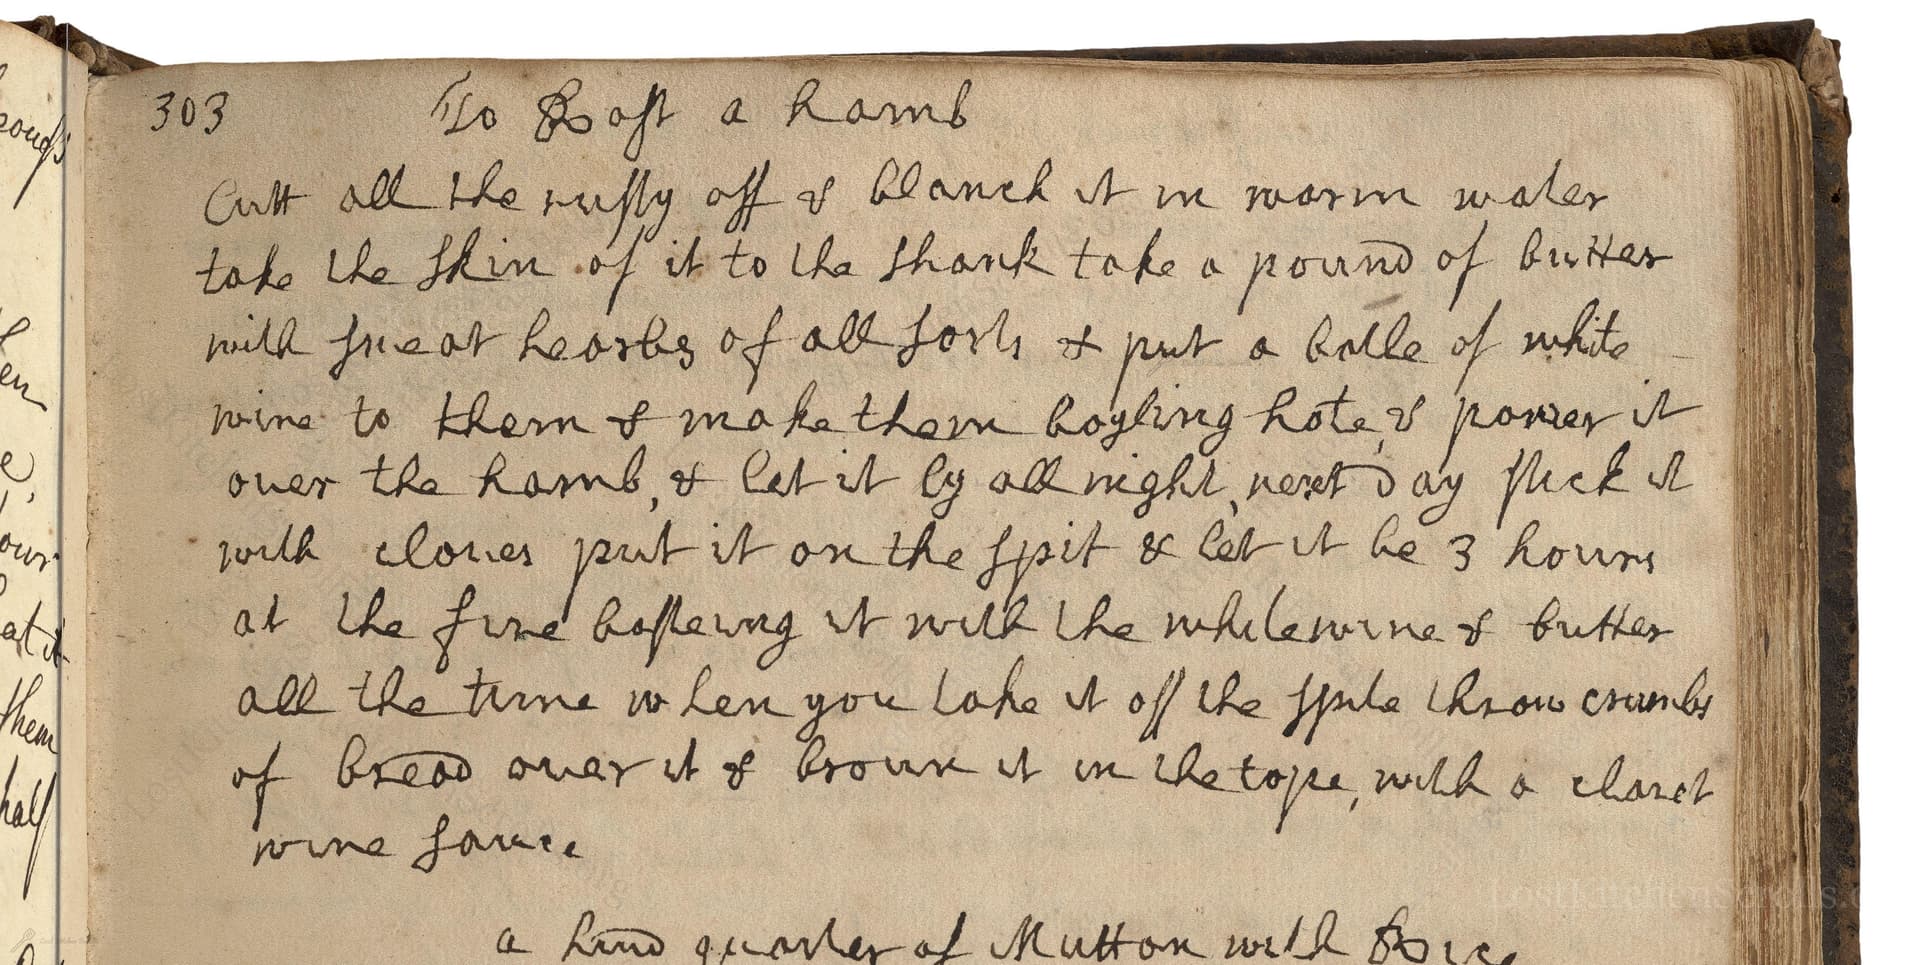 303 To Rost a hamb
Cutt all the rusty off & blanch it in warm water
take the skin of it to the shank take a pound of butter
with sweat hearbs of all sorts & put a botle of white
wine to them & make them boyling hote, & power it
over the hamb, & let it ly all night, next day stick it
with cloves put it on the spit & let it be 3 hours
at the fire basteing it with the white wine & butter
all the time when you take it off the spite throw crumbs
of bread over it & broun it in the tope, with a claret
wine sauce
a hind quarter of Mutton with Rice
LostKitchenScrolls